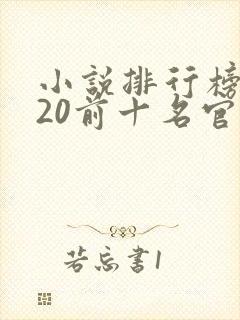 小說排行榜
20前十名官
若忘書1